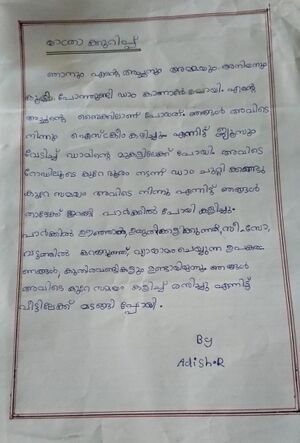 യാത്രാ കുറിപ്പ്
ഞാനും എന്റെ അച്ഛനും അമ്മയും അനിയനും
കൂടി പോത്തുണ്ടി ഡാം കാണാൻ പോയി. എന്റെ
അച്ഛന്റെ ബൈക്കിലാണ് പോയത്. ഞങ്ങൾ അവിടെ
നിന്നും ഐസ്ക്രീം കഴിച്ചു. എന്നിട്ട് ജ്യൂസും
വേടിച്ച് ഡാമിന്റെ മുകളിലേക്ക് പോയി. അവിടെ
റോഡിലൂടെ കുറേ ദൂരം നടന്ന് ഡാം ചുറ്റി കണ്ടു
കുറേ സമയം അവിടെ നിന്നു എന്നിട്ട് ഞങ്ങൾ
താഴേക്ക് ഇറങ്ങി പാർക്കിൽ പോയി കളിച്ചു.
പാർക്കിൽ ഊഞ്ഞാൽ, ഉരുതിക്കളിക്കുന്നത്, സീ-സോ,
വട്ടത്തിൽ കറങ്ങുന്നത്, വ്യായാമം ചെയ്യുന്ന ഉപകര
ണങ്ങൾ, കുതിരവണ്ടികളും ഉണ്ടായിരുന്നു. ഞങ്ങൾ
അവിടെ കുറേ സമയം കളിച്ച് രസിച്ചു എന്നിട്ട്
വീട്ടിലേക്ക് മടങ്ങി പ്പോയി.
By
Adish.R